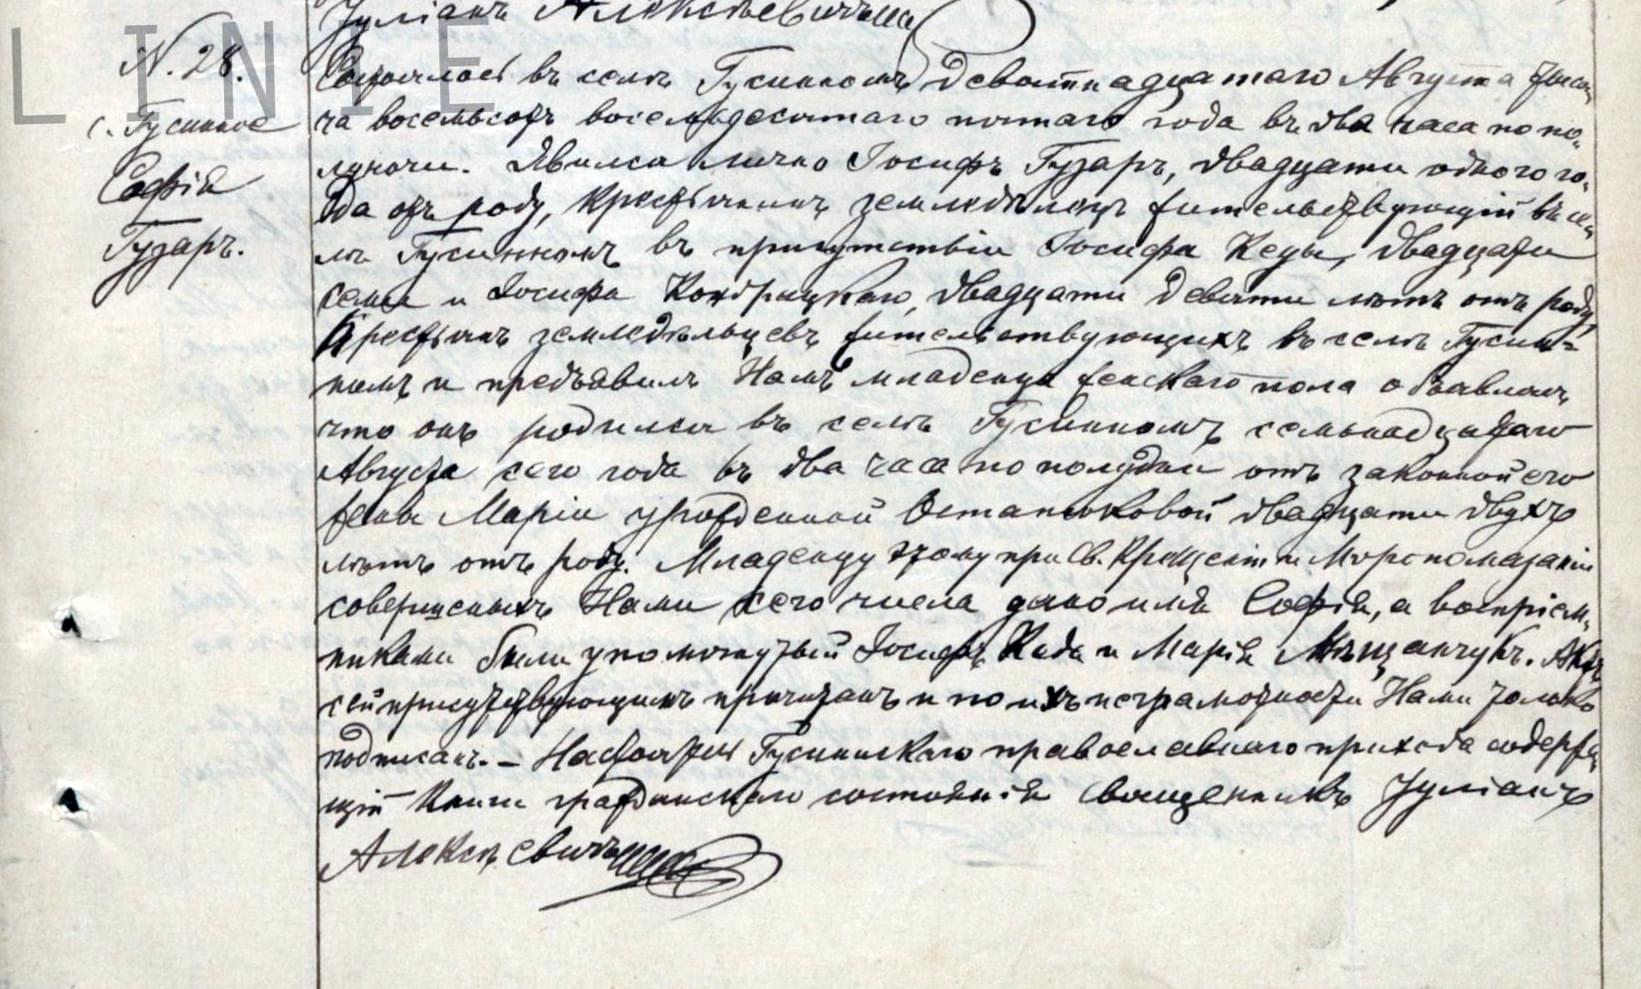 Іуліанъ Алексѣевичъ
LINE
N. 28.
с. Гусинное
Софія
Гузаръ.
Состоялось въ селѣ Гусинномъ девятнадцатаго Августа тыся-
ча восемьсотъ восемьдесятаго пятаго года въ два часа по по-
луночи. Явился лично Іосифъ Гузаръ, двадцати одного го-
да отъ роду, крестьянинъ земледѣлецъ жительствующій въ се-
лѣ Гусинномъ въ присутствіи Іосифа Кеды, двадцати
семи и Іосифа Кондрацкаго, двадцати девяти лѣтъ отъ роду,
крестьянъ земледѣльцевъ жительствующихъ въ селѣ Гусин-
номъ и предъявилъ Намъ младенца женскаго пола объявляя,
что онъ родился въ селѣ Гусинномъ семьнадцатаго
Августа сего года въ два часа по полудни отъ законной его
жены Маріи урожденной Остапюковой двадцати двухъ
лѣтъ отъ роду. Младенцу этому при Св. Крещеніи и Мѵропомазаніи
совершенныхъ Нами сего числа дано имя Софія, а воспріем-
никами были упомянутый Іосифъ Кеда и Марія Мѣщанчукъ. Актъ
сей присутствующимъ прочитанъ и по ихъ неграмотности Нами только
подписанъ. – Настоятель Гусиннскаго православнаго прихода содержа-
щій Книги гражданскаго состоянія Священникъ Іуліанъ
Алексѣевичъ